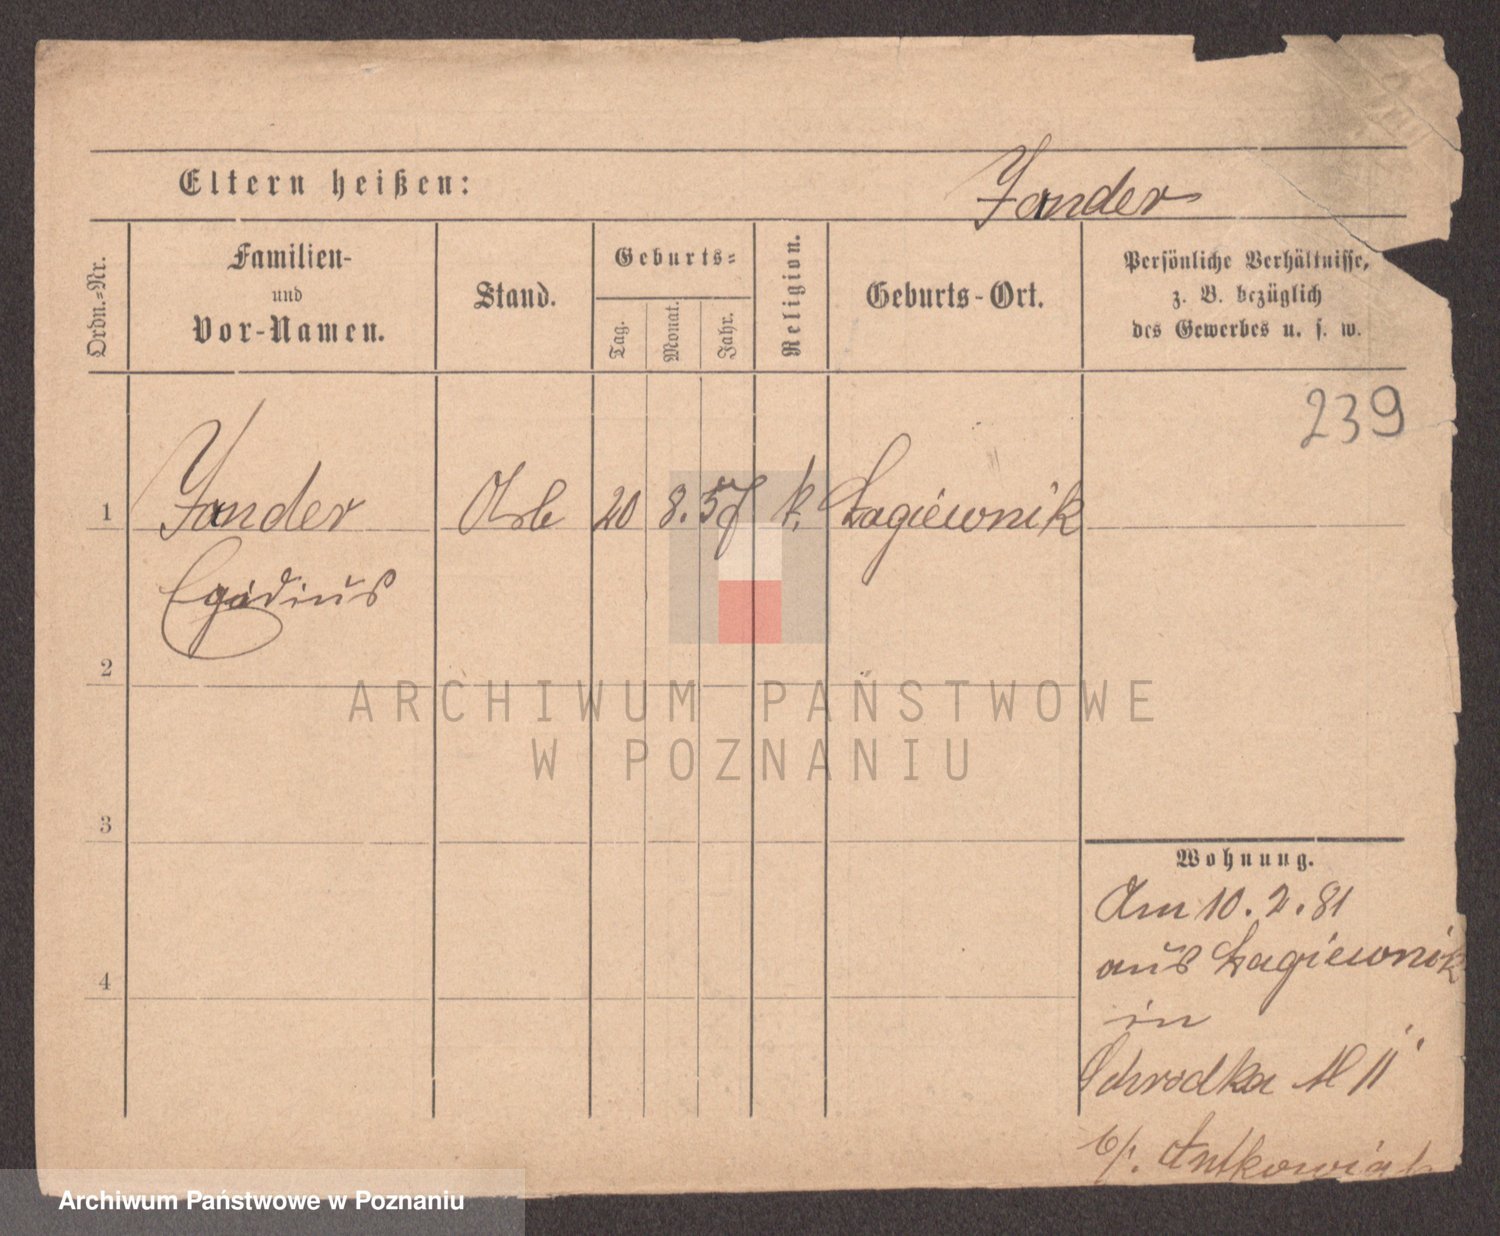 Eltern heißen:
Yander
Ordn.-Nr.
Familien-
und
Vor-Namen.
Stand.
Geburts-
Tag.
Monat.
Jahr.
Religion.
Geburts-Ort.
Persönliche Verhältnisse,
z. B. bezüglich
des Gewerbes u. s. w.
239
1 Yander Arb 20 8. 57 k. Łagiewnik
Egidius
2
ARCHIWUM PAŃSTWOWE
W POZNANIU
3
4
Wohnung.
Am 10. 2. 81
aus Łagiewnik
in
Schrodka № 11
b/. Antkowiak
Archiwum Państwowe w Poznaniu